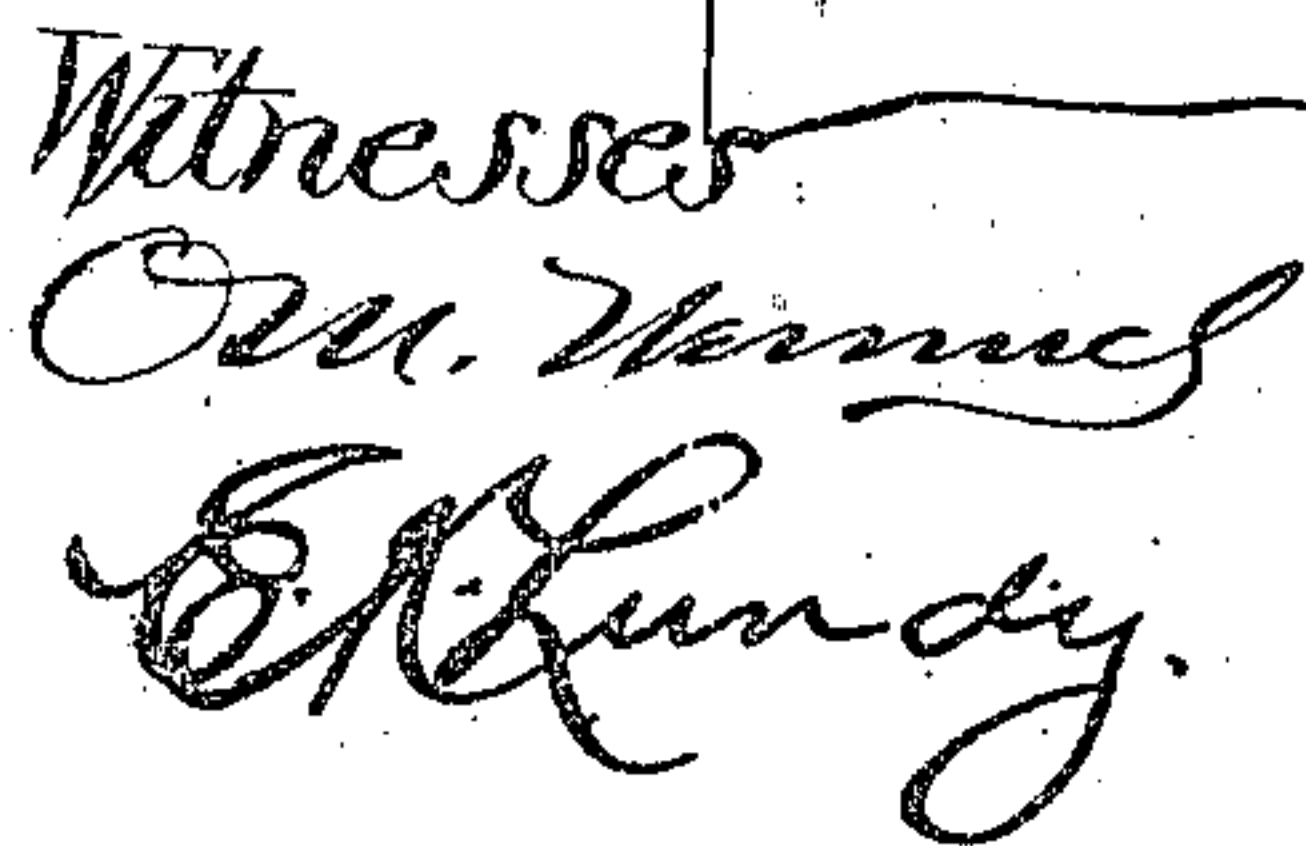 Witnesses
O. M. Wermich
E. N. Lundy.